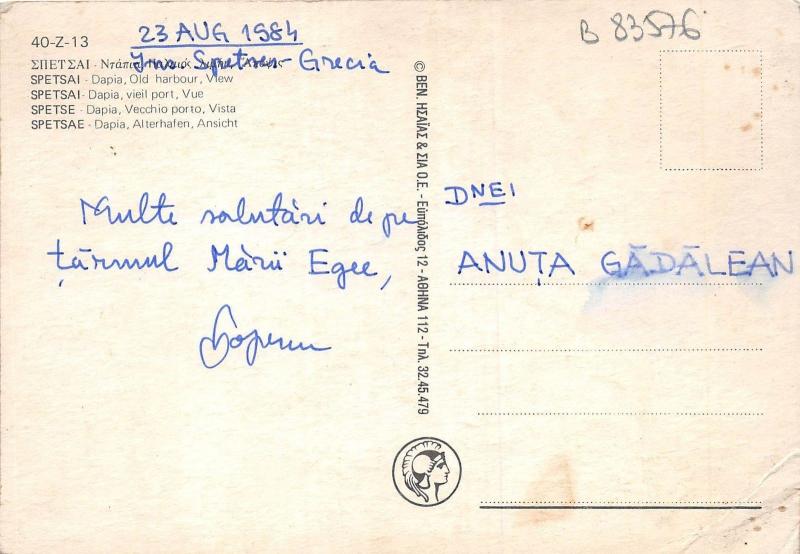 23 AUG 1984
B 83576
40-Z-13
Spetses - Grecia
ΣΠΕΤΣΑΙ - Ντάπια
SPETSAI - Dapia, Old harbour, View
SPETSAI - Dapia, vieil port, Vue
SPETSE - Dapia, Vecchio porto, Vista
SPETSAE - Dapia, Alterhafen, Ansicht
© ΒΕΝ. ΗΣΑΪΑΣ & ΣΙΑ Ο.Ε. - Ευπόλιδος 12 - ΑΘΗΝΑ 112 - Τηλ. 32.45.479
Multe salutări de pe
țărmul Mării Egee,
DNEI
ANUȚA GĂDĂLEAN